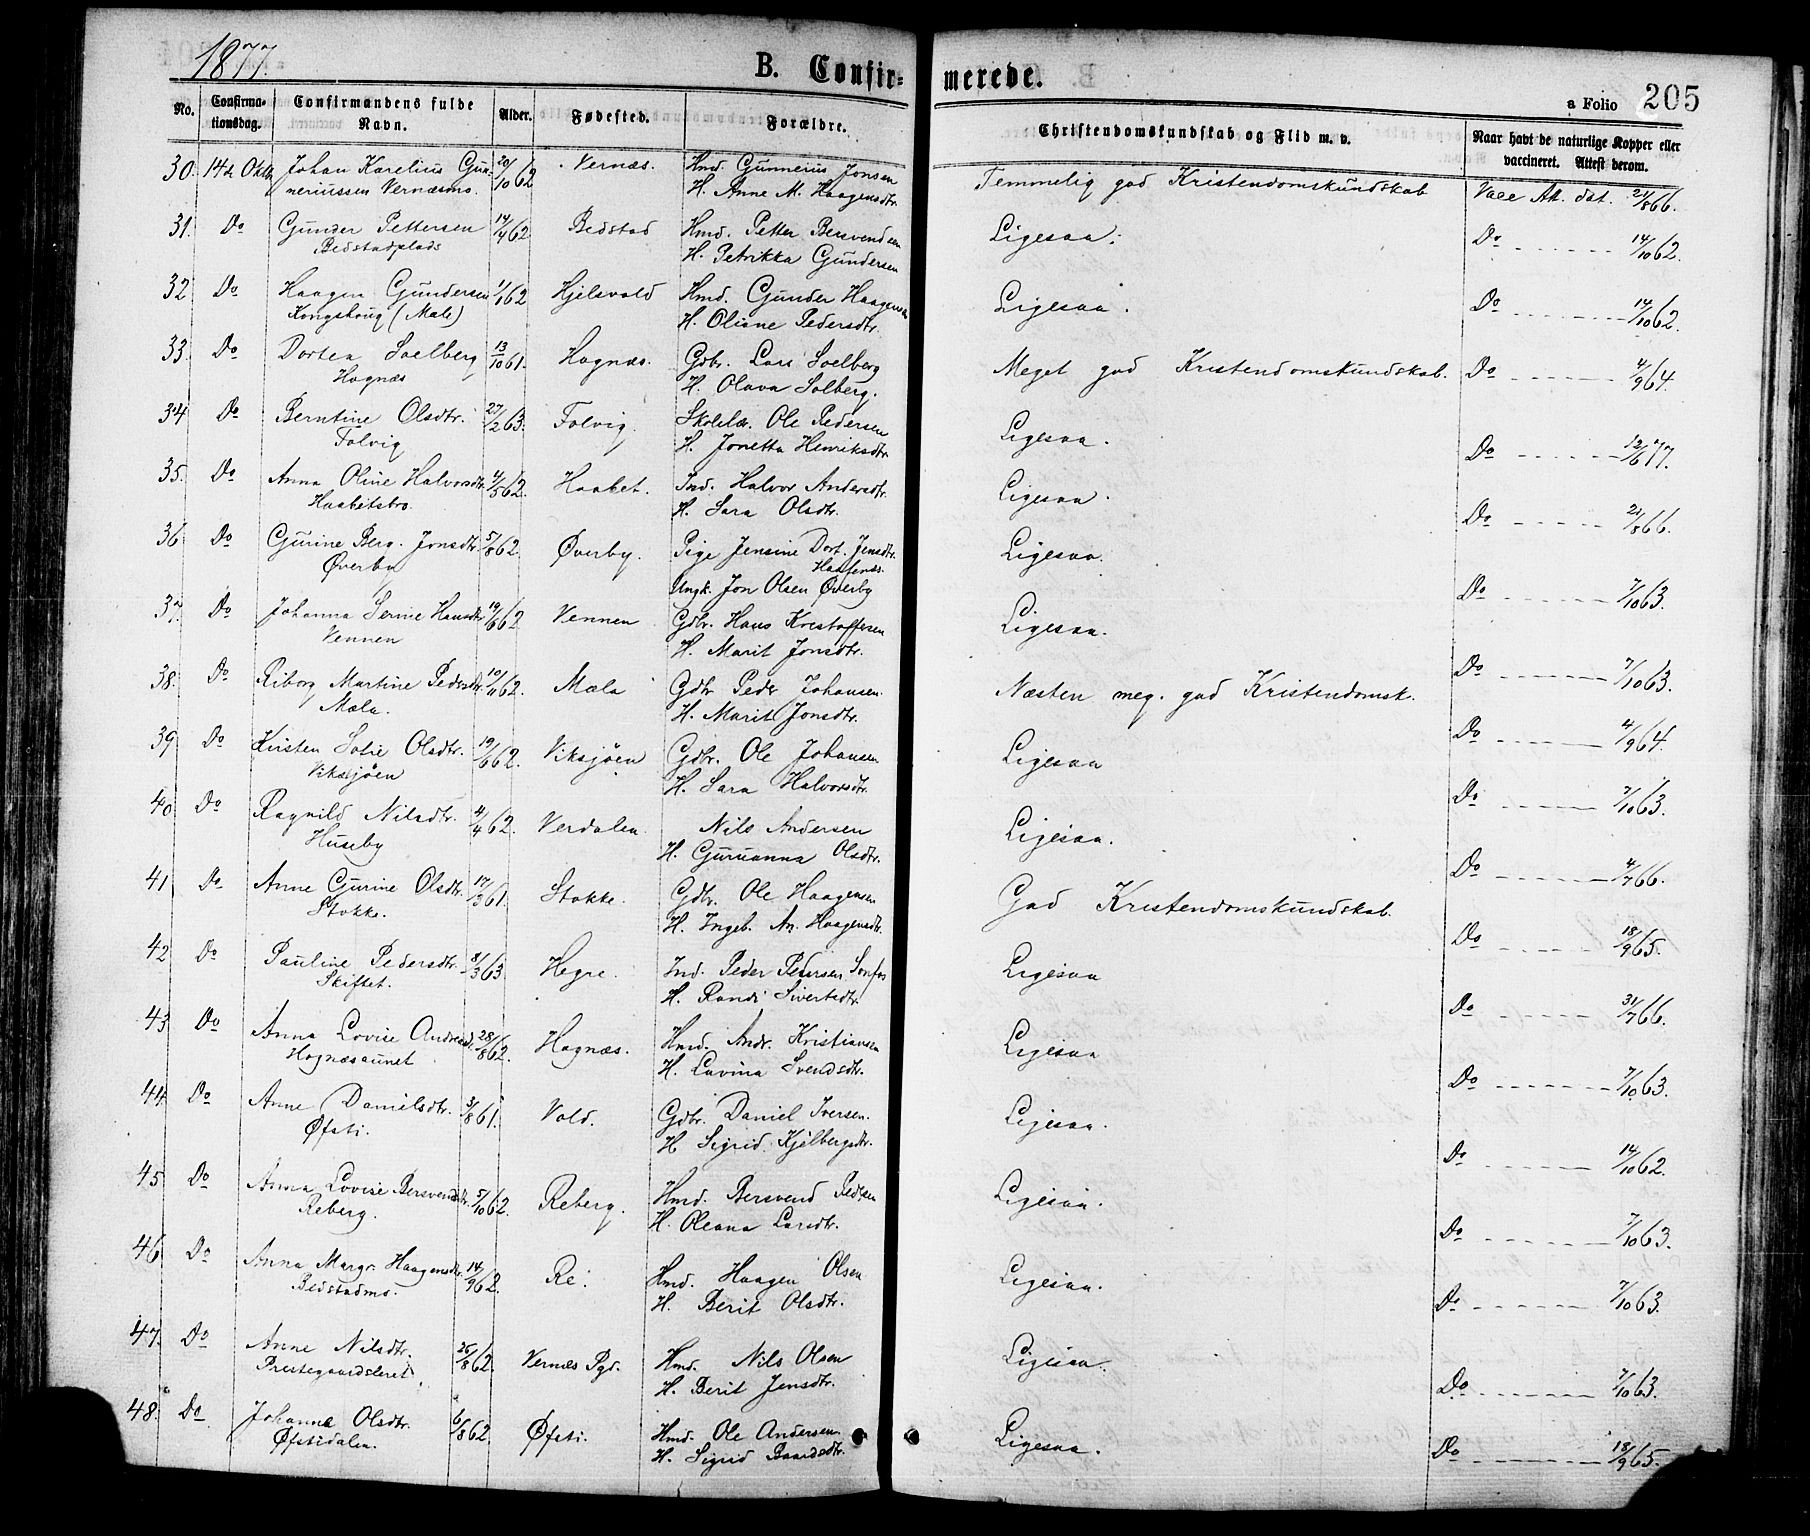 1877.
B. Confir-
merede.
a Folio 205
No.
Confirma-
tionsdag.
Confirmandens fulde
Navn.
Alder.
Fødested.
Forældre.
Christendomskundskab og Flid m. v.
Naar havt de naturlige Kopper eller
vaccineret. Attest derom.
30. 14de Oktbr Johan Karelius Gun- 20/10 62 Vernæs. Hmd. Gunnerius Jonsen Temmelig god Kristendomskundskab Vacc At. dat. 21/8 66.
neriussen Vernæsmo. H. Anne M. Haagensdtr.
31. Do Gunder Pettersen 14/4 62 Bedstad Hmd. Petter Bersvendsen Ligesaa. Do 14/10 62.
Bedstadplads H. Petrikka Gundersen
32 Do Haagen Gundersen 1/1 62 Hjelsvold Hmd. Gunder Haagensen Ligesaa. Do 14/10 62.
Kongshoug (Mæle) H. Oliane Pedersdtr.
33. Do Dortea Soelberg 13/10 61. Hognæs. Gdbr. Lars Soelberg Meget god Kristendomskundskab. Do 4/9 64.
Hognæs H. Olava Solberg.
34 Do Berntine Olsdtr. 27/2 63. Folvig. Skolelær. Ole Pedersen Ligesaa. Do 12/6 77.
Folvig H. Jonetta Henriksdtr.
35. Do Anna Oline Halvorsdtr. 4/5 62. Haabet. Ind. Halvor Andersdtr. Ligesaa. Do 21/8 66.
Haabetsbro. H. Sara Olsdtr.
36 Do Gurine Berg. Jonsdtr. 5/8 62. Øverby. Pige Jensine Dort. Jensdtr. Ligesaa. Do 7/10 63.
Øverby Ungk. Jon Olsen Øverby
37. Do Johanna Hansdtr 19/6 62 Vennen Gdbr. Hans Kristoffersen Ligesaa. Do 7/10 63.
Vennen H. Marit Jonsdtr.
38. Do Riborg Martine Pedersdtr. 10/11 62. Mæla Gdbr Peder Johansen. Næsten meg. god Kristendomsk. Do 4/9 64.
Mæla. H. Marit Jonsdtr.
39 Do Kirsten Sofie Olsdtr. 19/6 62. Viksjøen Gdbr. Ole Johansen Ligesaa Do 7/10 63.
Viksjøen H. Sara Halvorsdtr.
40. Do Ragnild Nilsdtr. 4/4 62. Verdalen. Nils Andersen Ligesaa. Do 4/7 66.
Huseby H. Guruanna Olsdtr.
41 Do Anne Gurine Olsdtr. 17/3 61. Stokke. Gdbr. Ole Haagensen God Kristendomskundskab. Do 18/9 65.
Stokke. H. Ingeb. An. Haagensdtr.
42 Do Pauline Pedersdtr. 8/3 63 Hegre. Ind. Peder Pedersen Ligesaa Do 31/7 66.
Skiftet. H. Randi Sivertsdtr.
43 Do Anna Lovise Andreasdtr. 28/8 62. Hognæs. Hmd. Andr. Kristiansen Ligesaa Do 7/10 63.
Hognæsaunet H. Lavina Svendsdtr.
44. Do Anne Danielsdtr. 3/8 61. Vold. Gdbr. Daniel Iversen. Ligesaa. Do 14/10 62.
Øfsti. H Sigrid Kjelbergsdtr.
45 Do Anna Lovise Bersvendsdtr. 5/10 62. Reberg. Hmd. Bersvend Pedersen Ligesaa. Do 7/10 63.
Reberg. H. Oleana Larsdtr.
46 Do Anna Margr. Haagensdtr. 14/9 62. Re. Hmd. Haagen Olsen Ligesaa. Do 7/10 63.
Bedstadmo. H. Berit Olsdtr.
47. Do Anne Nilsdtr. 26/8 62. Vernæs Pgd. Hmd. Nils Olsen Ligesaa. Do 7/10 63.
Prestegaardsleret H. Berit Jensdtr.
48. Do Johanna Olsdtr. 6/8 62 Øfsti. Hmd. Ole Andersen. Ligesaa. Do 18/9 65.
Øfstidalen. H. Sigrid Baardsdtr.